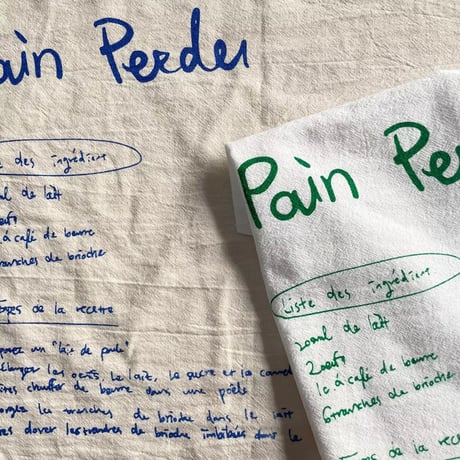 ain Perdu
des ingrédients
ml de lait
oeufs
c à café de beurre
tranches de brioche
de la recette
un "lait de poule"
les oeufs, le lait, le sucre et la cannel
chauffer du beurre dans une poêle
les tranches de brioche dans le lait
dorer les tranches de brioche imbibées dans le
Pain Pe
Liste des ingrédients
200ml de lait
2oeufs
1c à café de beurre
6tranches de brioche
de la recette